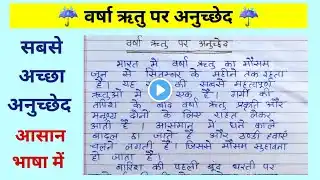 ☔ वर्षा ऋतु पर अनुच्छेद ☔
सबसे
अच्छा
अनुच्छेद
आसान
भाषा में
वर्षा ऋतु पर अनुच्छेद
भारत में वर्षा ऋतु का मौसम
जून से सितम्बर के महीने तक रहता
है। यह की सबसे महत्वपूर्ण
ऋतुओं में एक है। गर्मी की
तपिश के बाद वर्षा ऋतु प्रकृति और
मनुष्य दोनों के लिए राहत लेकर
आती है। आसमान में घने काले
बादल छा जाते हैं और ठण्डी हवाएं
चलने लगती हैं। जिससे मौसम सुहावना
हो जाता है।
बारिश की पहली बूंद धरती पर